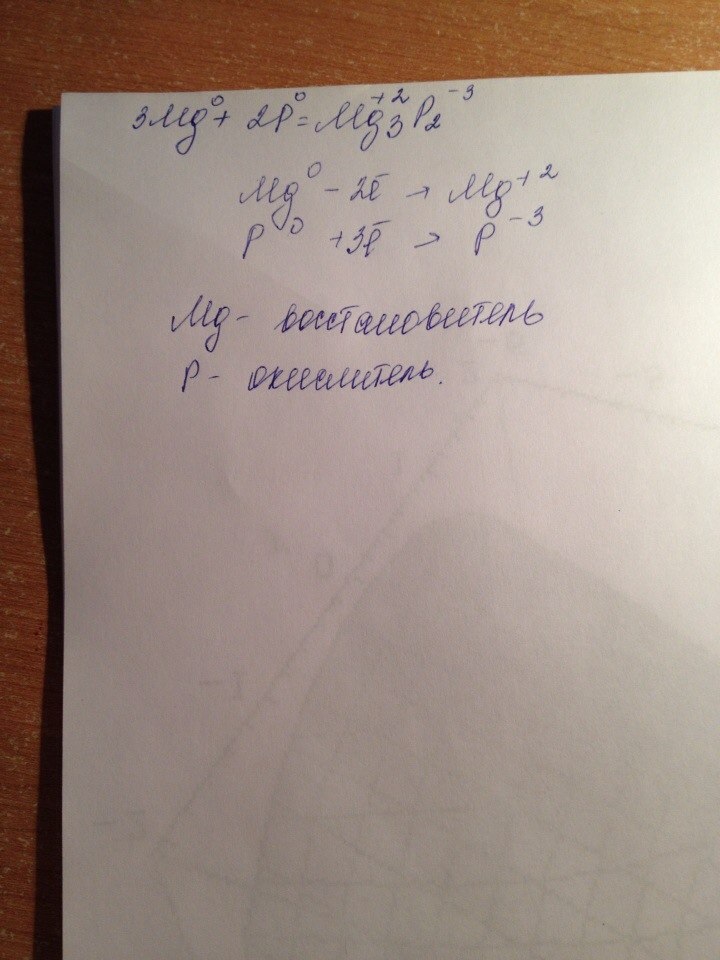 3Mg⁰ + 2P⁰ = Mg₃⁺²P₂⁻³
Mg⁰ - 2ē → Mg⁺²
P⁰ + 3ē → P⁻³
Mg - восстановитель
P - окислитель.